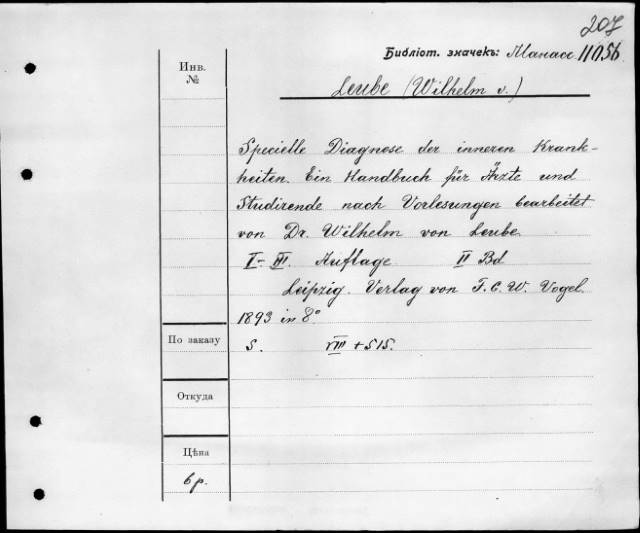 207
Библіот. значекъ: Манасс. 11056.
Инв.
№
Leube (Wilhelm v.)
Specielle Diagnose der inneren Krank-
heiten. Ein Handbuch für Ärzte und
Studirende nach Vorlesungen bearbeitet
von Dr. Wilhelm von Leube.
I–III. Auflage II Bd
Leipzig. Verlag von F. C. W. Vogel.
1893 in 8°
По заказу
S. VIII + 515.
Откуда
Цѣна
6 р.